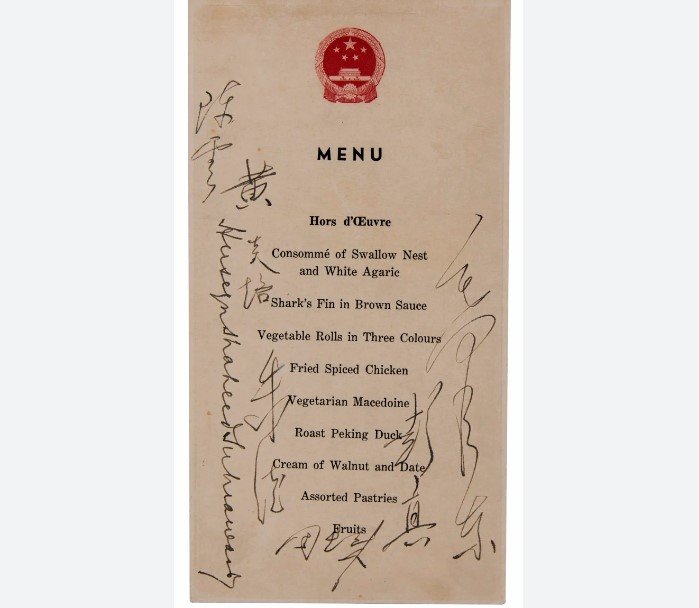 MENU
Hors d'Œuvre
Consommé of Swallow Nest
and White Agaric
Shark's Fin in Brown Sauce
Vegetable Rolls in Three Colours
Fried Spiced Chicken
Vegetarian Macedoine
Roast Peking Duck
Cream of Walnut and Date
Assorted Pastries
Fruits
黄炎培
Huseyn Shaheed Suhrawardy
朱德
周恩来
毛泽东